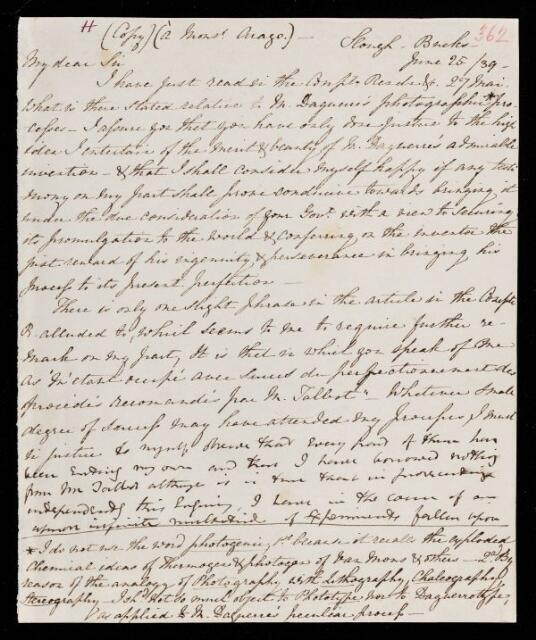 (Copy) (à Monsr Arago.) — 362
Slough. Bucks —
June 25 /39 —
My dear Sir
I have just read in the Compt. Rend. &c. 27 Mai.
What is there stated relative to M. Daguerre's photographic* pro-
cesses — I assure you that you have only done justice to the high
idea I entertain of the merit & beauty of M. Daguerre's admirable
invention — & that I shall consider myself happy if any testi-
mony on my part shall prove conducive towards bringing it
under the due consideration of your Govt. with a view to securing
its promulgation to the world & conferring on the inventor the
just reward of his ingenuity & perseverance in bringing his
process to its present perfection —
There is only one slight phrase in the article in the Compt
R. alluded to, which seems to me to require further re-
mark on my part, It is that in which you speak of me
as "m'étant occupé avec succès du perfectionnement des
procédés recommandés par M. Talbot" — Whatever small
degree of success may have attended my processes, I must
in justice to myself observe that every part of them have
been entirely my own and that I have borrowed nothing
from Mr Talbot although it is true that in prosecuting
independently this Enquiry I have in the course of an
almost infinite multitude of Experiments fallen upon
* I do not use the word photogenic, 1st because it recalls the exploded
Chemical ideas of thermogen & photogen of Van Mons & others — 2d By
reason of the analogy of Photography with Lithography, Chalcography,
Stereography — I shd not so much object to Phototype nor to Daguerrotype,
as applied to M. Daguerre's peculiar process —